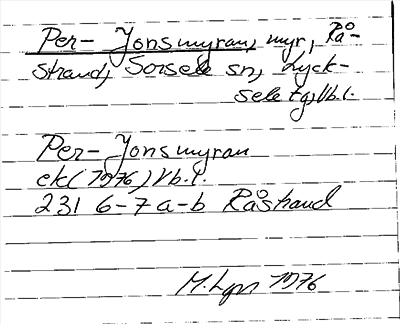 Per-Jonsmyran, myr, Rå-
strand, Sorsele sn, Lyck-
sele tg, Vb.l.
Per-Jonsmyran
ek (1976) Vb.l.
231 6-7 a-b Råstrand
M. Lgn 1976